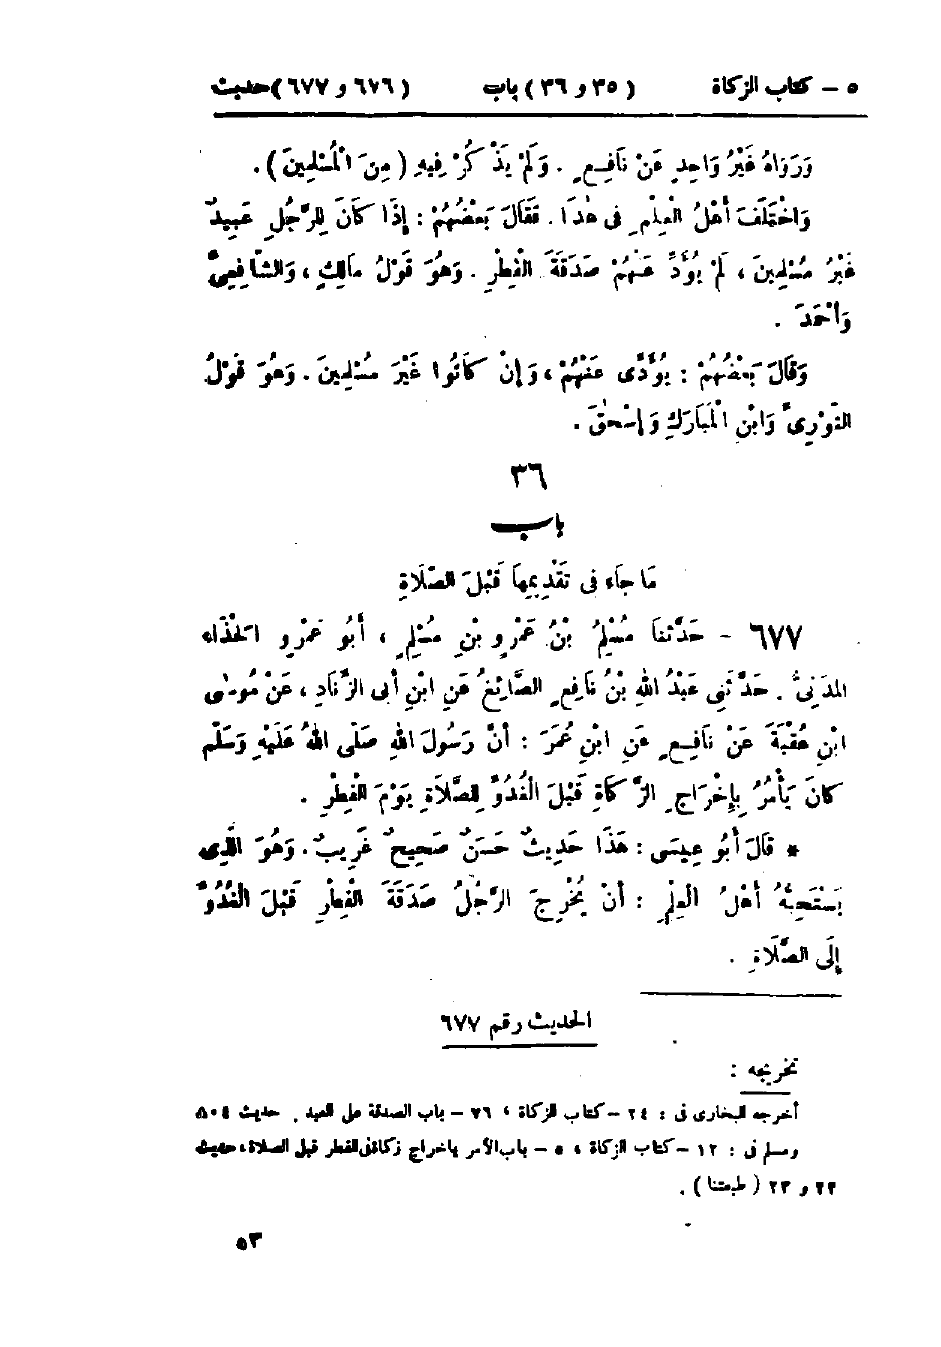 ٥ – كتاب الزكاة (٣٥ و ٣٦) باب (٦٧٦ و ٦٧٧) حديث
وَرَوَاهُ غَيْرُ وَاحِدٍ عَنْ نَافِعٍ . وَلَمْ يَذْكُرْ فِيهِ (مِنَ الْمُسْلِمِينَ) .
وَاخْتَلَفَ أَهْلُ الْعِلْمِ فِى هٰذَا . فَقَالَ بَعْضُهُمْ : إِذَا كَانَ لِلرَّجُلِ عَبِيدٌ
غَيْرُ مُسْلِمِينَ ، لَمْ يُؤَدِّ عَنْهُمْ صَدَقَةَ الْفِطْرِ . وَهُوَ قَوْلُ مَالِكٍ ، وَالشَّافِعِىِّ
وَأَحْمَدَ .
وَقَالَ بَعْضُهُمْ : يُؤَدَّى عَنْهُمْ ، وَإِنْ كَانُوا غَيْرَ مُسْلِمِينَ . وَهُوَ قَوْلُ
الثَّوْرِىِّ وَابْنِ الْمُبَارَكِ وَإِسْحٰقَ .
٣٦
باب
مَا جَاءَ فِى تَقْدِيمِهَا قَبْلَ الصَّلَاةِ
٦٧٧ – حَدَّثَنَا مُسْلِمُ بْنُ عَمْرِو بْنِ مُسْلِمٍ ، أَبُو عَمْرٍو الْحَذَّاء
المَدَنِىُّ . حَدَّثَنِى عَبْدُ اللهِ بْنُ نَافِعٍ الصَّائِغُ عَنِ ابْنِ أَبِى الزِّنَادِ ، عَنْ مُوسٰى
ابْنِ عُقْبَةَ عَنْ نَافِعٍ عَنِ ابْنِ عُمَرَ : أَنَّ رَسُولَ اللهِ صَلَّى اللهُ عَلَيْهِ وَسَلَّم
كَانَ يَأْمُرُ بِإِخْرَاجِ الزَّكَاةِ قَبْلَ الْغُدُوِّ لِلصَّلَاةِ يَوْمَ الْفِطْرِ .
* قَالَ أَبُو عِيسَى : هَذَا حَدِيثٌ حَسَنٌ صَحِيحٌ غَرِيبٌ . وَهُوَ الَّذِى
يَسْتَحِبُّهُ أَهْلُ الْعِلْمِ : أَنْ يُخْرِجَ الرَّجُلُ صَدَقَةَ الْفِطْرِ قَبْلَ الْغُدُوِّ
إِلَى الصَّلَاةِ .
الحديث رقم ٦٧٧
تخريجه :
أخرجه البخارى فى : ٢٤ – كتاب الزكاة ، ٧٦ – باب الصدقة قبل العيد . حديث ٨٠٤
ومسلم فى : ١٢ – كتاب الزكاة ، ٥ – باب الأمر بإخراج زكاة الفطر قبل الصلاة ، حديث
٢٢ و ٢٣ (طبعتنا) .
٥٣